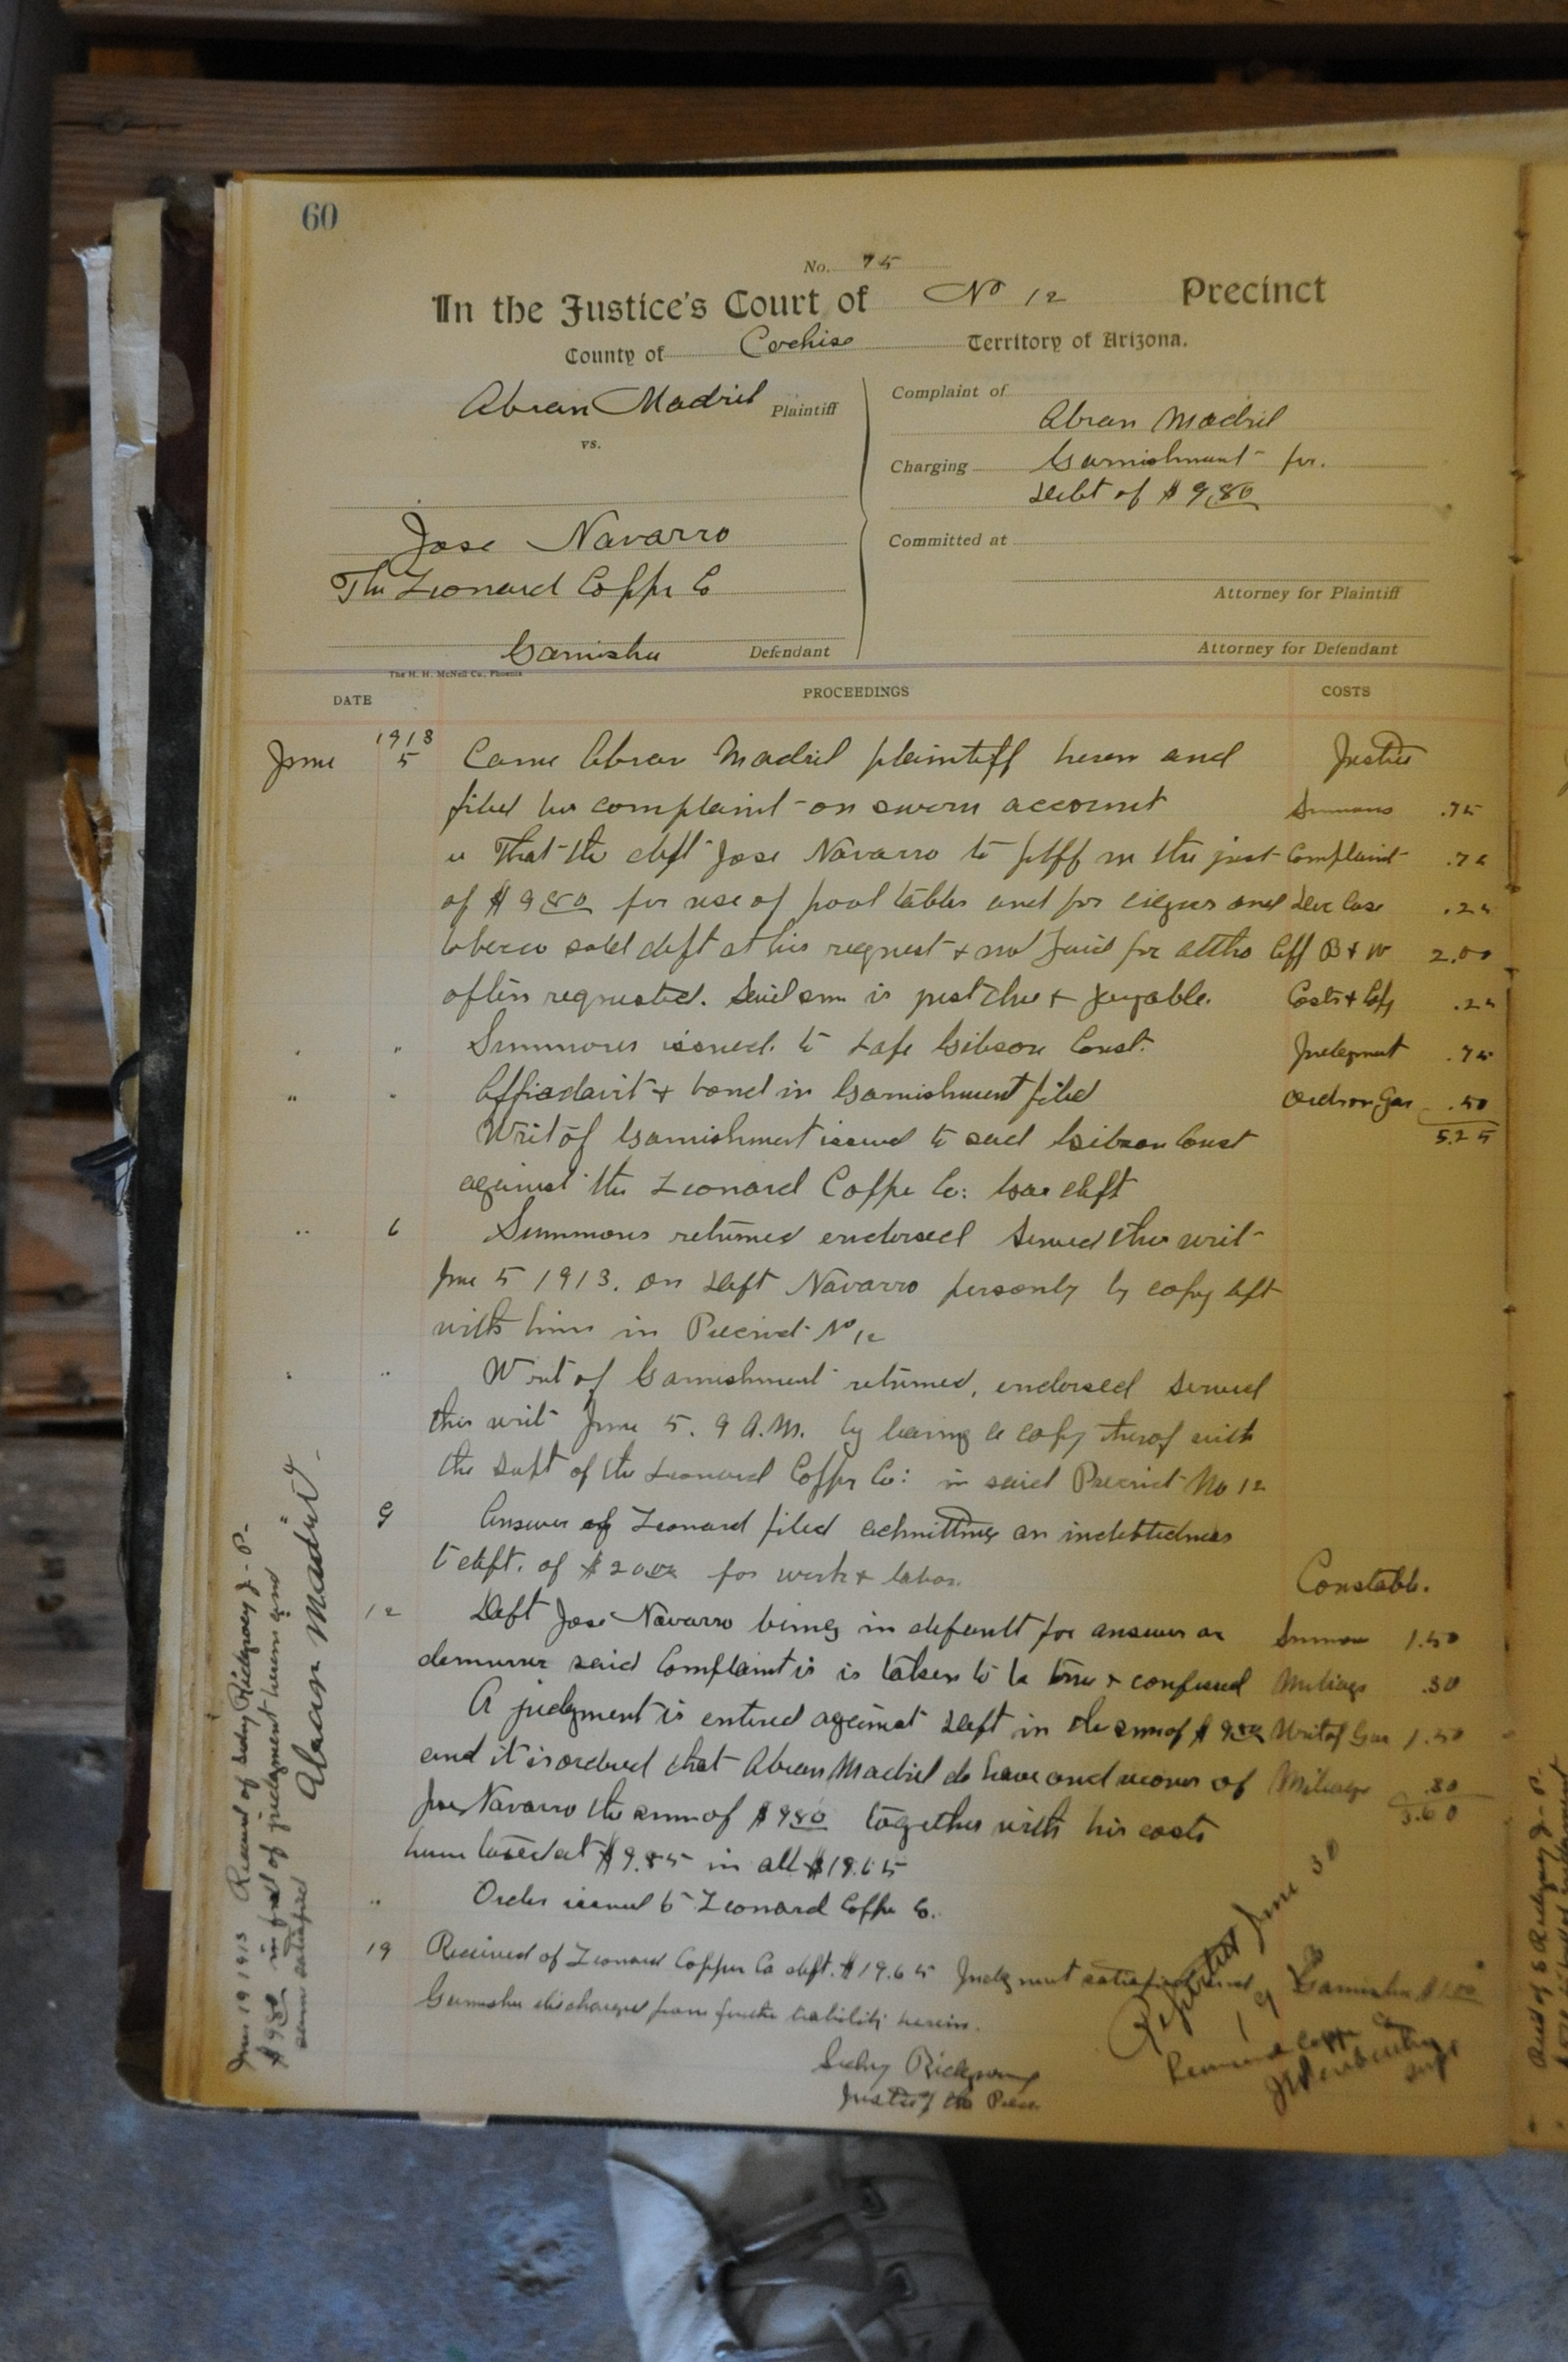 60
No. 75
In the Justice's Court of No 12 Precinct
County of Cochise Territory of Arizona.
Abran Madril Plaintiff
vs.
Jose Navarro
The Leonard Copper Co
Garnishee Defendant
Complaint of
Abran Madril
Charging Garnishment for
Debt of $ 9.80
Committed at
Attorney for Plaintiff
Attorney for Defendant
The H. H. McNeil Co., Phoenix
DATE PROCEEDINGS COSTS
June 1913 5 Came Abran Madril plaintiff herein and Justice
filed his complaint on sworn account Summons .75
That the deft Jose Navarro to pltff in the just Complaint .75
of $ 9.80 for use of pool tables and for cigars and Doc Case .25
tobacco sold deft at his request & not paid for altho Aff B & W 2.00
often requested. Said sum is just due & payable. Costs .25
" " Summons issued to Lafe Gibson Const. Judgment .75
" " Affiadavit & bond in Garnishment filed Order on Gar .50
Writ of Garnishment issued to said Gibson Const 5.25
against the Leonard Copper Co: Gar deft
" 6 Summons returned endorsed Served this writ
June 5 1913. on Deft Navarro personly by copy left
with him in Precinct No 12
" " Writ of Garnishment returned, endorsed served
this writ June 5. 9 A.M. by leaving a copy therof with
the Supt of the Leonard Copper Co: in said Precinct No 12
9 Answer of Leonard filed admitting an indebtedness
to deft. of $ 20.00 for work & labor. Constable.
12 Deft Jose Navarro being in default for answer or Summons 1.50
demurrer said Complaint is is taken to be true & confessed Mileage .30
A judgment is entered against Deft in the sum of $ 9.80 Writ of Gar 1.50
and it is ordered that Abran Madril do have and recover of Mileage .30
Jose Navarro the sum of $ 9.80 together with his costs 3.60
herein taxed at $9.85 in all $19.65
" Order issued to Leonard Copper Co.
19 Received of Leonard Copper Co deft. $19.65 Judgment satisfied and Garnishee
Garnishee discharged from further liability herein.
Justice of the Peace
June 19 1913 Received of J - P -
$ 9.80 in full of judgment herein and
same satisfied
Abran Madril
June 30